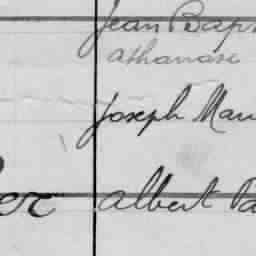 Jean Bap
athanase
Joseph Mau
er Albert Pa